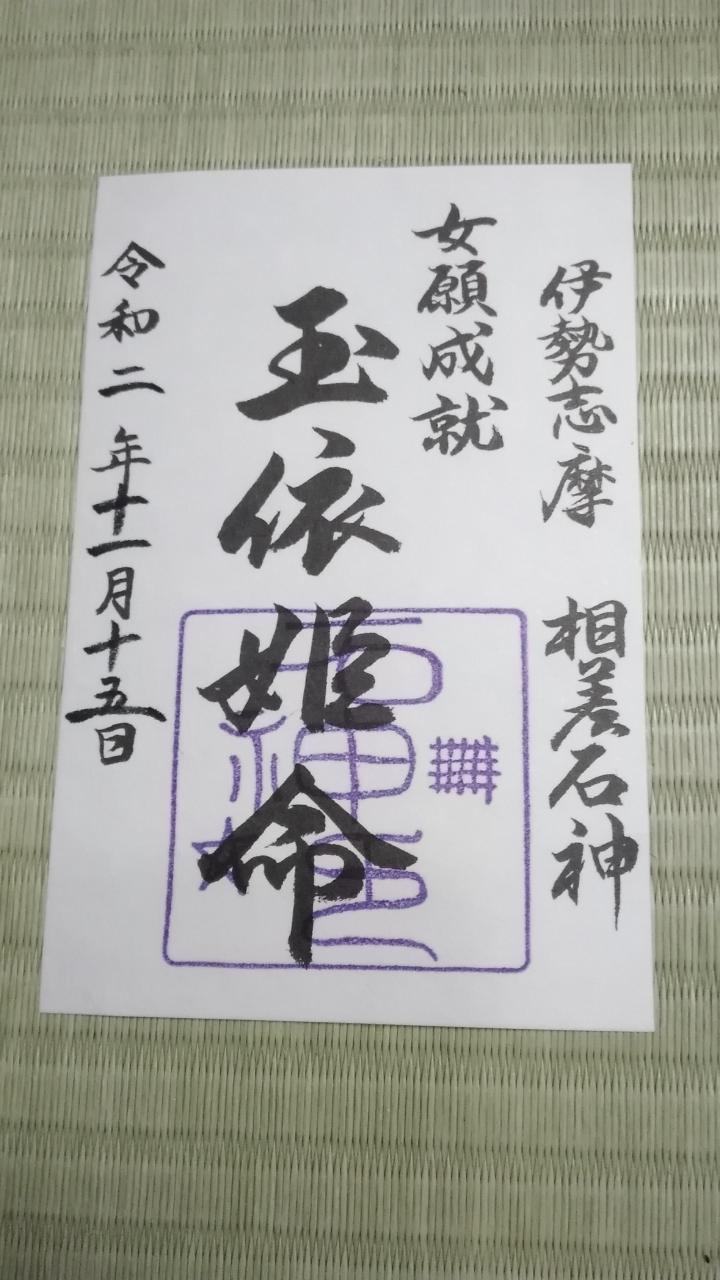 伊勢志摩 相差石神
女願成就
玉依姫命
令和二年十一月十五日